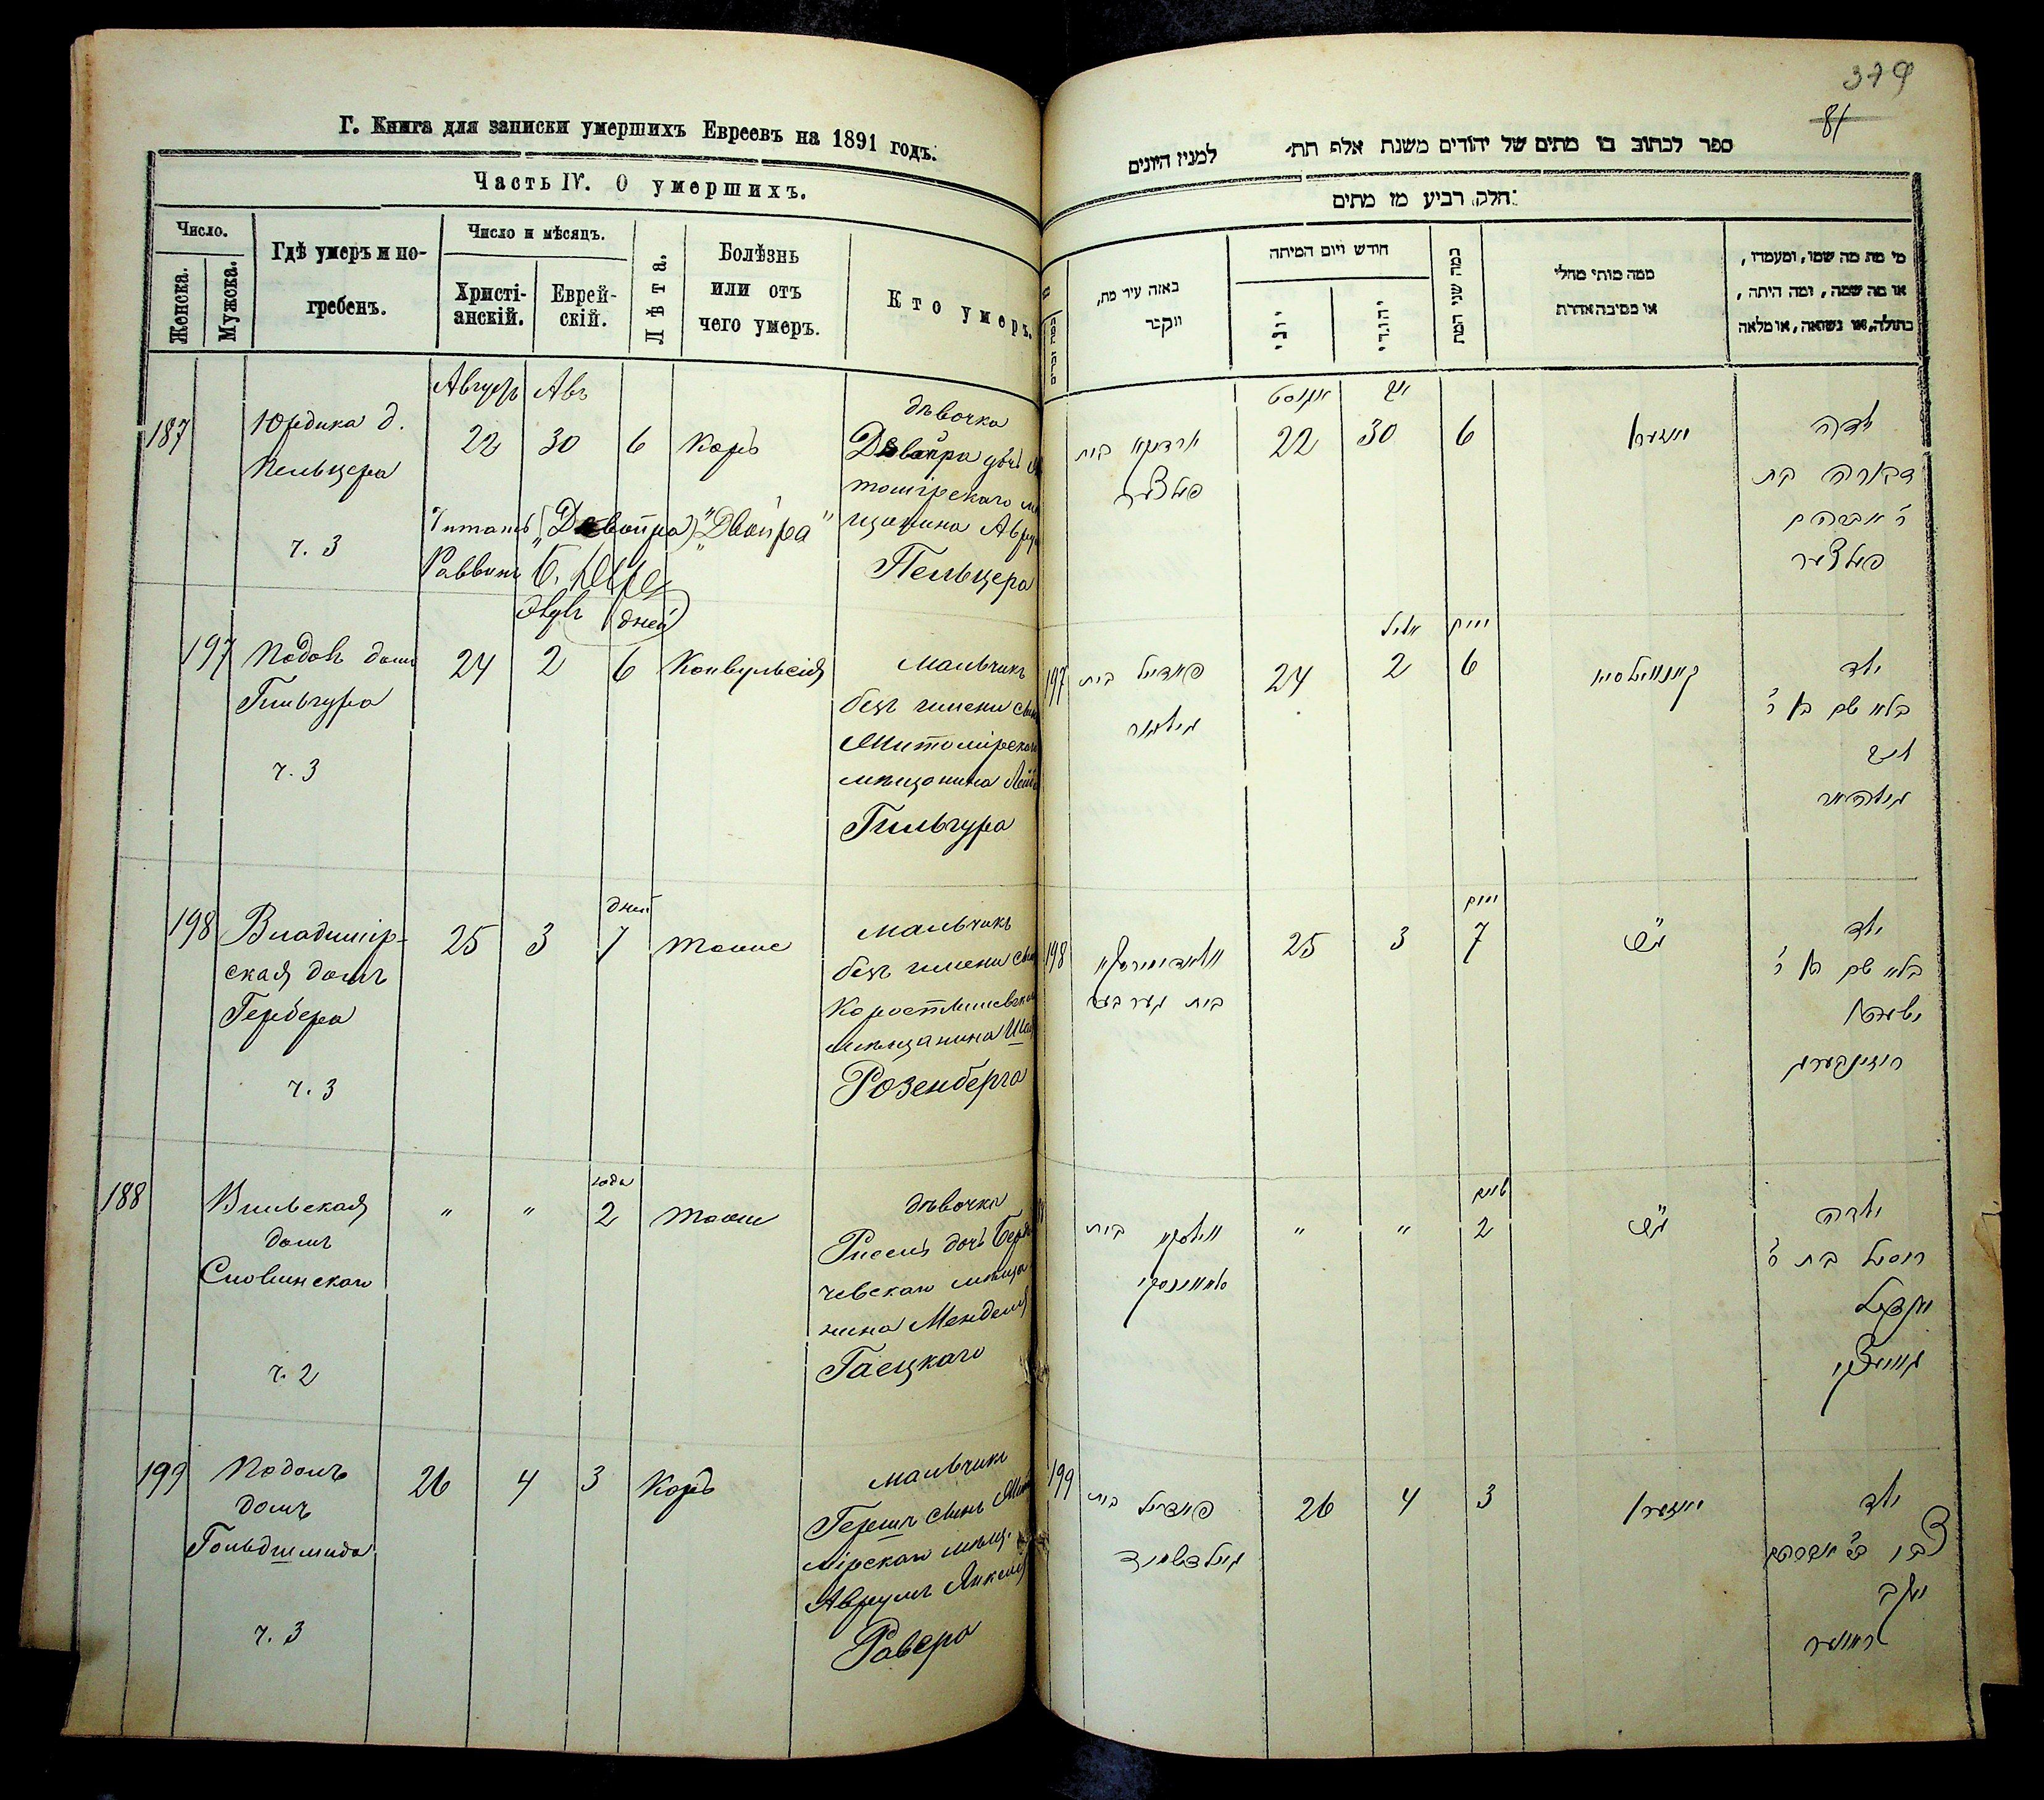 Г. Книга для записки умершихъ Евреевъ на 1891 годъ.
Часть IV. О умершихъ.
Число.
Женска.
Мужска.
Гдѣ умеръ и по-
гребенъ.
Число и мѣсяцъ.
Христі-
анскій.
Еврей-
скій.
Лѣта.
Болѣзнь
или отъ
чего умеръ.
Кто умеръ.
Августъ Авъ
187
Юрдика д.
Пельцера
ч. 3
22 30 6 Корь
дѣвочка
Двойра дочь
томірскаго
щанина
Пельцера
Читать „(Двойра) „Двойра"
Раввинъ
дней
197 Подолъ домъ
Гильгура
ч. 3
24 2 6 Конвульсія
мальчикъ
безъ имени сынъ
Житомірскаго
мѣщанина
Гильгура
198 Владимір-
ская домъ
Гербера
ч. 3
дней
25 3 7 тоже
мальчикъ
безъ имени сынъ
мѣщанина
Розенберга
188 Вильская
домъ
Словинскаго
ч. 2
года
" " 2 тоже
дѣвочка
Рисель дочь Берди
чевскаго мѣща
нина Менделя
Гаецкаго
199 Подолъ
домъ
Гольдшмида
ч. 3
26 4 3 Корь
мальчикъ
Гершъ сынъ Жито
мірскаго мѣщ.
Аврумъ Янкеля
Равера
379
81
ספר לכתוב בו מתים של יהודים משנת אלף תת׳ למנין היונים
חלק רביע מז מתים
באזה עיר מת,
ווקבר
חודש ויום המיתה
יוני
יהודי
כמה שני המת
ממה מותי מחלי
או מסיבה אחרת
מי מת מה שמו, ומעמדו,
או מה שמה, ומה היתה,
בתולה, או נשואה, או מלאה
אוגוסט אב
בית
פעלצער
22 30 6
ילדה
דבורה בת
ר׳ אברהם
פעלצער
אלול ימים
197 פאדאל בית
24 2 6
ילד
בלא שם בן ר׳
ימים
198
בית גערבער
25 3 7 ג״כ
ילד
בלא שם בן ר׳
ראזינבערג
שנים
בית
" " 2 ג״כ
ילדה
ריסיל בת ר׳
מענדיל
199 פאדאל בית
גאלדשמיד
26 4 3
ילד
צבי ב״ר אברהם
יעקב
ראווער